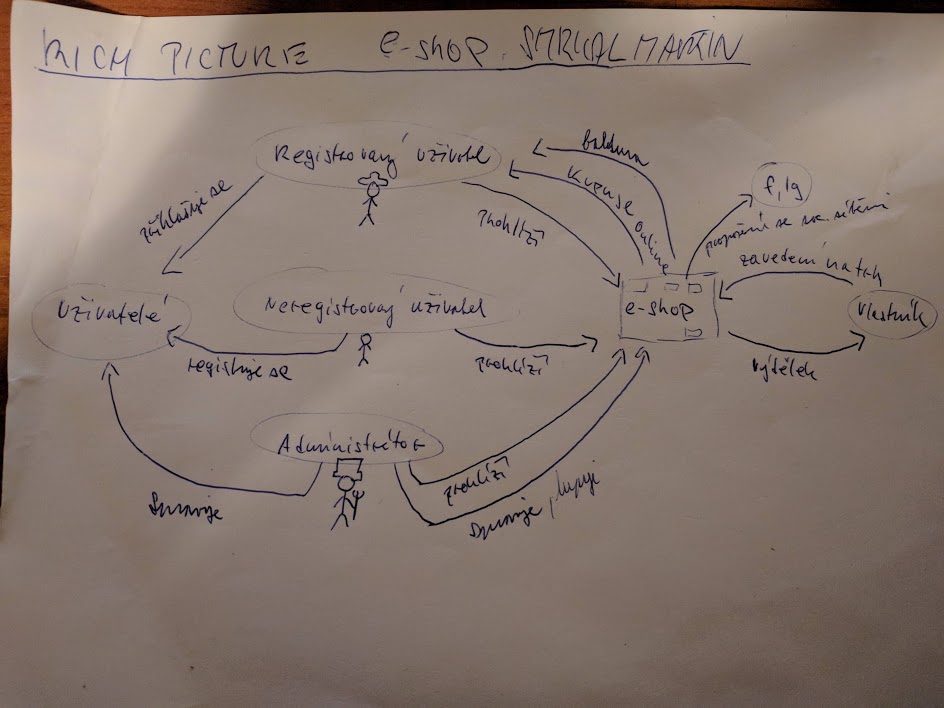 RICH PICTURE e-shop
Registrovaný uživatel
přihlašuje se
prohlíží
Kurzy se online
f, ig
propojení se soc. sítěmi
zavedení na trh
Uživatelé
Neregistrovaný uživatel
e-shop
Vlastník
registruje se
prohlíží
výdělek
Administrátor
prohlíží
Spravuje
spravuje,